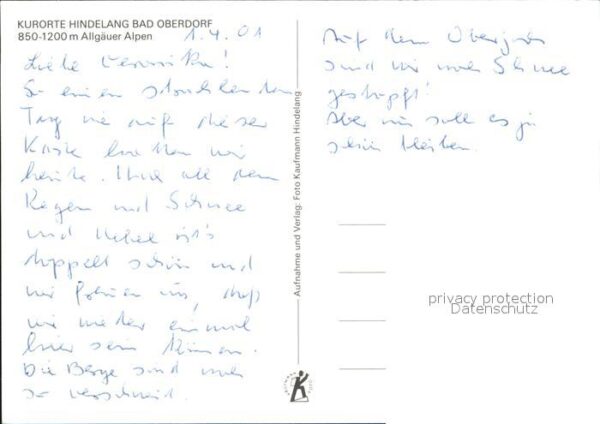 KURORTE HINDELANG BAD OBERDORF
850-1200 m Allgäuer Alpen
1.4.01
Liebe Veronika!
So einen strahlenden
Tag wie auf dieser
Karte hatten wir
heute. Und all dem
Regen und Schnee
und Nebel ist's
doppelt schön und
wir freuen uns, daß
wir wieder einmal
hier sein können.
Die Berge sind noch
so verschneit.
Aufnahme und Verlag: Foto Kaufmann Hindelang
Auf dem Oberjoch
sind wir noch Schnee
gestapft!
Aber nun soll es ja
schön bleiben.
privacy protection
Datenschutz